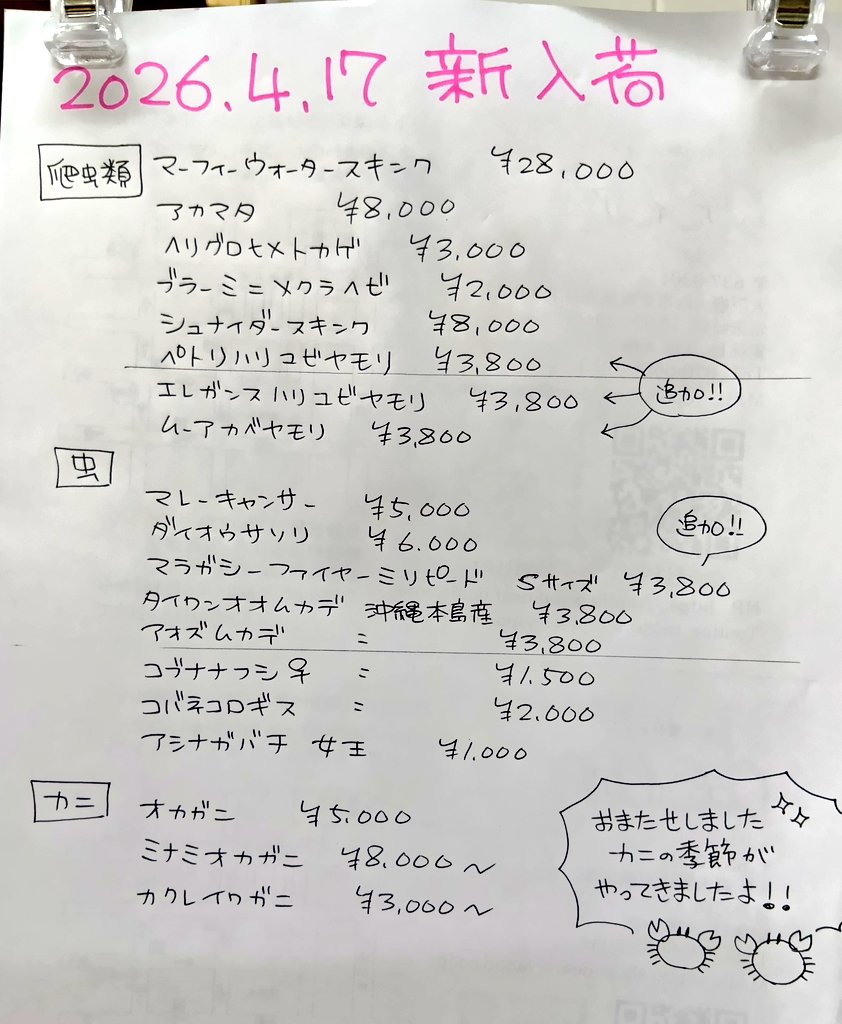 2026.4.17 新入荷
爬虫類 マーフィーウォータースキンク ¥28,000
アカマタ ¥8,000
ヘリグロヒメトカゲ ¥3,000
ブラーミニメクラヘビ ¥2,000
シュナイダースキンク ¥8,000
ペトリハリユビヤモリ ¥3,800
エレガンスハリユビヤモリ ¥3,800
追加!!
ムーアカベヤモリ ¥3,800
虫
マレーキャンサー ¥5,000
ダイオウサソリ ¥6.000
追加!!
マラガシーファイヤーミリピード Sサイズ ¥3,800
タイワンオオムカデ 沖縄本島産 ¥3,800
アオズムカデ 〃 ¥3,800
コブナナフシ♀ 〃 ¥1.500
コバネコロギス 〃 ¥2.000
アシナガバチ 女王 ¥1.000
カニ
オカガニ ¥5.000
ミナミオカガニ ¥8.000〜
カクレイワガニ ¥3,000〜
おまたせしました
カニの季節が
やってきましたよ!!